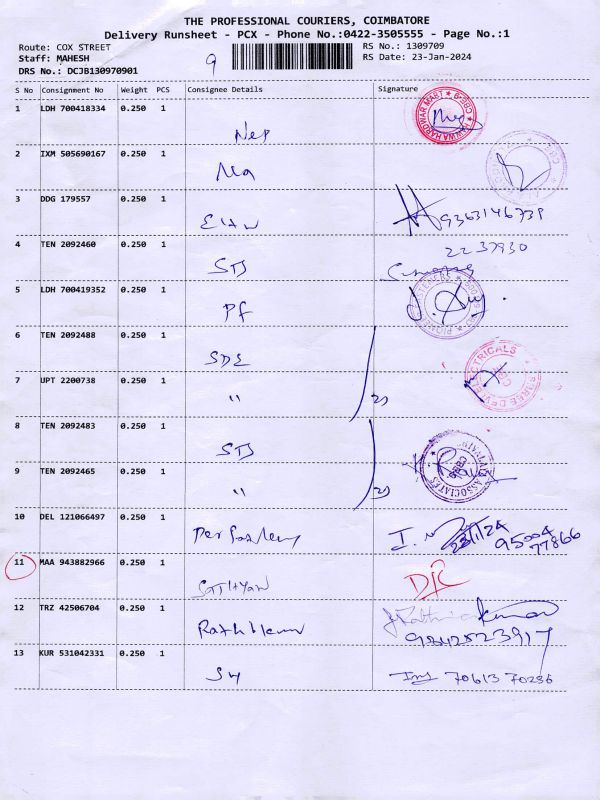 THE PROFESSIONAL COURIERS, COIMBATORE
Delivery Runsheet - PCX - Phone No.:0422-3505555 - Page No.:1
Route: COX STREET RS No.: 1309709
Staff: MAHESH 9 RS Date: 23-Jan-2024
DRS No.: DCJB130970901
S No Consignment No Weight PCS Consignee Details Signature
1 LDH 700418334 0.250 1 Nep
2 IXM 505690167 0.250 1 Ma
3 DDG 179557 0.250 1 9363146739
4 TEN 2092460 0.250 1 STJ 2237930
5 LDH 700419352 0.250 1 Pf
6 TEN 2092488 0.250 1 SDE
7 UPT 2200738 0.250 1 " 2)
8 TEN 2092483 0.250 1 STJ
9 TEN 2092465 0.250 1 " 2) ASSOCIATES
10 DEL 121066497 0.250 1 23/1/24 95004 77866
11 MAA 943882966 0.250 1 D/C
12 TRZ 42506704 0.250 1 9842523917
13 KUR 531042331 0.250 1 70613 70236